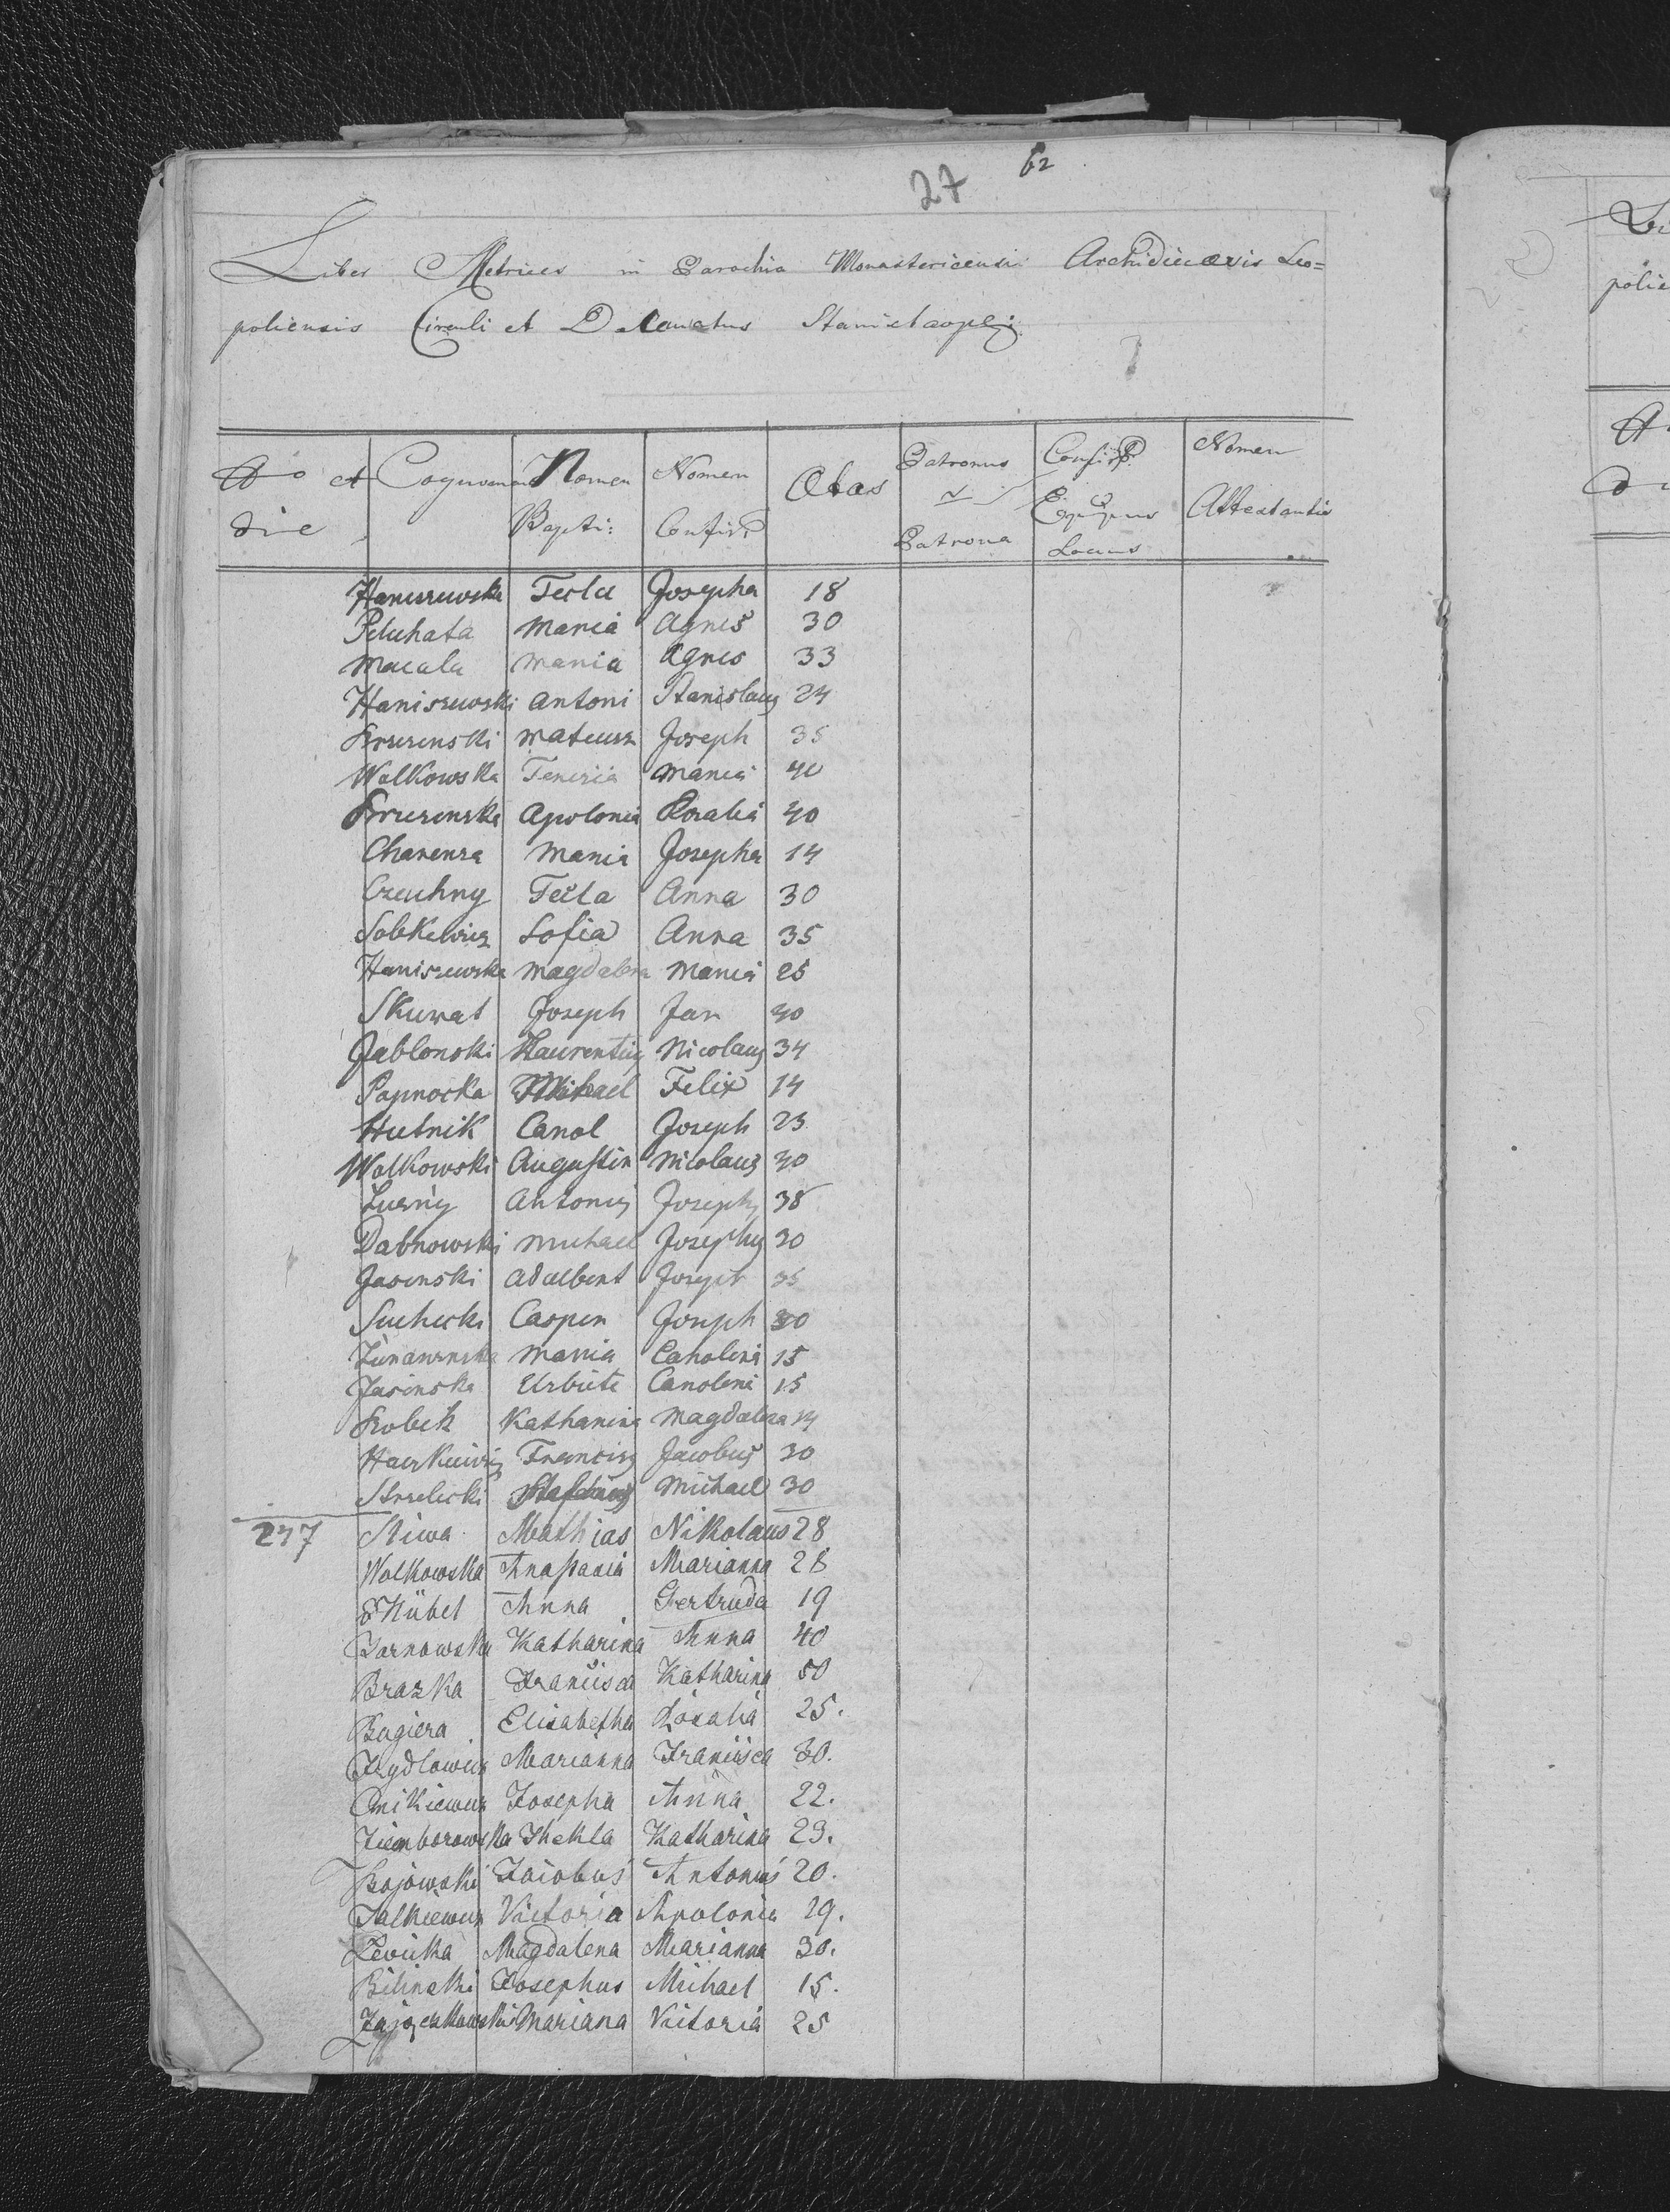 27 62
Liber Metrices in Parochia Monastericensi Archidiecaesis Leo=
poliensis Circuli et Decanatus Stanislaopli:
Ao et die Cognomen Nomen Bapti: Nomen Confir: Aetas Patronus et Patrona Locus Nomen Attestantis
Haniszewska Tecla Josepha 18
Peluhata Maria Agnes 30
Macala Maria Agnes 33
Haniszewski Antoni Stanislaus 24
Mateusz Joseph 35
Walkowska Maria 40
Apolonia Rosalia 40
Charenza Maria Josepha 14
Czeuhny Tecla Anna 30
Sobkewicz Sofia Anna 35
Haniszewska Magdalena Maria 25
Skurat Joseph Jan 40
Jablonski Laurentius Nicolaus 34
Papnocka Michael Felix 14
Hutnik Carol Joseph 23
Walkowski Augustin Nicolaus 30
Antonius Josephus 38
Dabrowski Michael Josephus 30
Jasenski Adalbert Joseph 35
Suchecki Casper Joseph
Maria Carolina 15
Jasinska Carolina 15
Katharina Magdalena 14
Francisz Jacobus 30
Strzelecki Michael 30
247 Sliwa Mathias Nikolaus 28
Walkowska Anastasia Marianna 28
Anna Gertruda 19
Tarnowska Katharina Anna 40
Brazka Francisca Katharina 50
Bugiera Elisabetha Rosalia 25.
Marianna Francisca 30.
Onikiewicz Josepha Anna 22.
Ziemborowska Thekla Katharina 23.
Bojowski Jacobus Antonius 20.
Falkiewicz Victoria Apolonia 29.
Lewicka Magdalena Marianna 30.
Bilinski Josephus Michael 15.
Zajączkowska Mariana Victoria 25